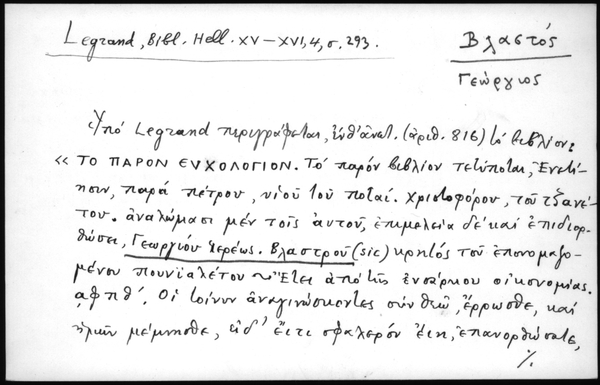 Legrand, Bibl. Hell. XV–XVI, 4, σ. 293.
Βλαστός
Γεώργιος
Ὑπό Legrand περιγράφεται, ἐνθ' ἀνωτ. (ἀριθ. 816) τό βιβλίον:
« ΤΟ ΠΑΡΟΝ ΕΥΧΟΛΟΓΙΟΝ. Τό παρόν βιβλίον τετύπται, Ἐνετί-
ησιν, παρά πέτρου, υἱοῦ τοῦ ποταί. Χριστοφόρου, τοῦ τζανέ-
του. ἀναλώμασι μέν τοῖς αὐτοῦ, ἐπιμελεία δέ καί ἐπιδιορ-
θώσει, Γεωργίου ἱερέως. Βλαστροῦ (sic) κρητός τοῦ ἐπονομαζο-
μένου πουνιαλέτου ~ Ἔτει ἀπό τῆς ἐνσάρκου οἰκονομίας.
͵αφπθ΄. Οἱ τοίνυν ἀναγινώσκοντες σύν θεῶ, ἔρρωσθε, καί
ἡμῶν μέμνησθε, εἰδ' ἔιτι σφαλερόν ἔιη, ἐπανορθώσατε,
%.